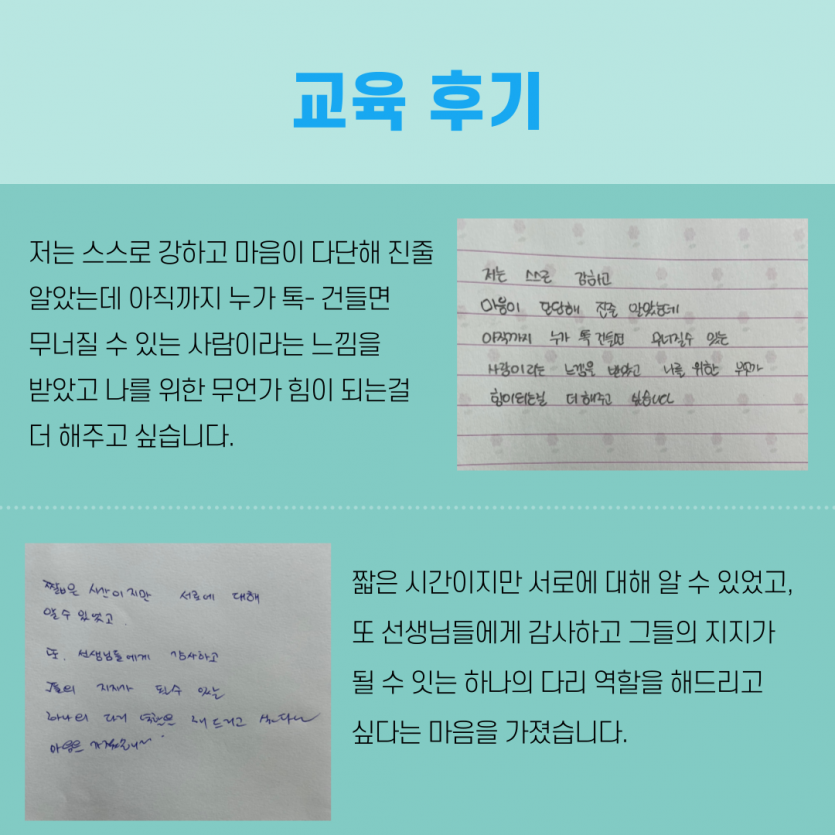 교육 후기
저는 스스로 강하고 마음이 다단해 진줄
알았는데 아직까지 누가 톡- 건들면
무너질 수 있는 사람이라는 느낌을
받았고 나를 위한 무언가 힘이 되는걸
더 해주고 싶습니다.
저는 스스로 강하고
마음이 단해 진줄 알았는데
아직까지 누가 톡 건들면 무너질수 있는
사람이라는 느낌을 받았고 나를 위한
힘이되는걸 더 해주고 싶습니다
짧은 시간이지만 서로에 대해
알 수 있었고
또, 선생님들에게 감사하고
그들의 지지가 될수 있는
하나의 다리 역할을 해드리고 싶다는
마음을
짧은 시간이지만 서로에 대해 알 수 있었고,
또 선생님들에게 감사하고 그들의 지지가
될 수 잇는 하나의 다리 역할을 해드리고
싶다는 마음을 가졌습니다.